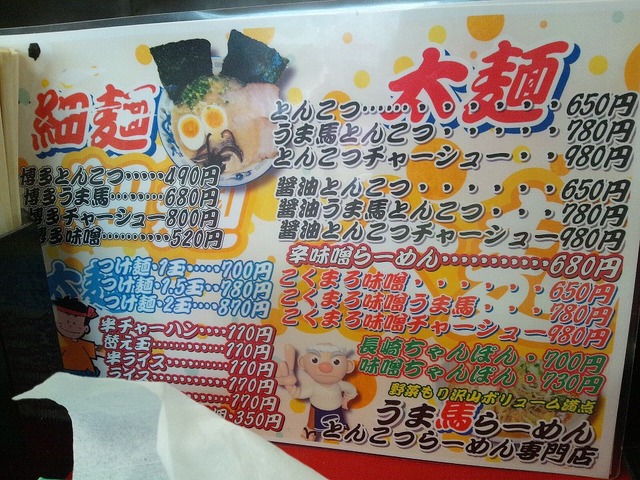 細麺
博多とんこつ……490円
博多うま馬………680円
博多チャーシュー800円
博多味噌…………520円
つけ麺・1玉・・・・・700円
つけ麺・1.5玉・・780円
つけ麺・2玉・・・870円
半チャーハン・・・・110円
替え玉
半ライス
ライス
170円
350円
太麺
とんこつ……・・・・・・650円
うま馬とんこつ・・・・・780円
とんこつチャーシュー・・980円
醤油とんこつ・・・・・・650円
醤油うま馬とんこつ・・・780円
醤油とんこつチャーシュー980円
辛味噌らーめん…………680円
こくまろ味噌・・・・・・650円
こくまろ味噌うま馬・・・780円
こくまろ味噌チャーシュー・980円
長崎ちゃんぽん・700円
味噌ちゃんぽん・730円
野菜もり沢山ボリューム満点
うま馬らーめん
とんこつらーめん専門店